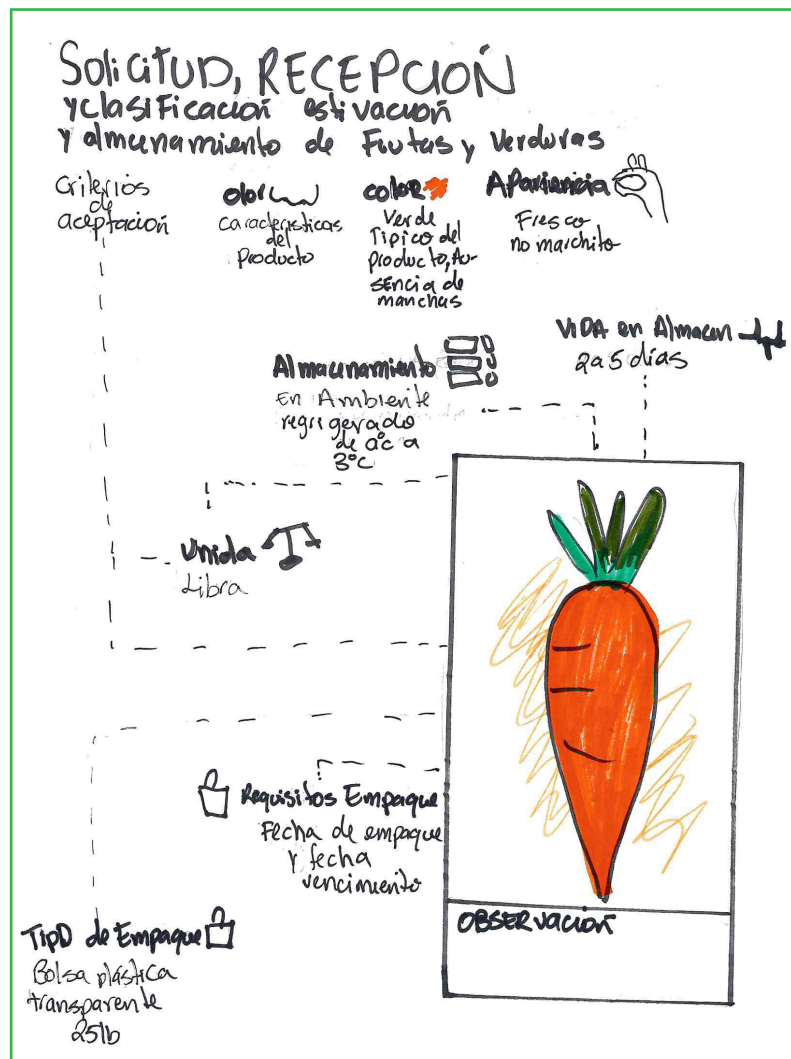 Solicitud, RECEPCIÓN
y clasificación estivación
y almacenamiento de Frutas y Verduras
Criterios
de
aceptación
olor
características
del
Producto
color
Verde
Típico del
producto, Au-
sencia de
manchas
Apariencia
Fresco
no marchito
Almacenamiento
En Ambiente
regrigerado
de 0°c a
3°C
ViDA en Almacen
2a5 días
Unida
Libra
Requisitos Empaque
Fecha de empaque
y fecha
vencimiento
Tipo de Empaque
Bolsa plástica
transparente
25lb
OBSERVACIÓN